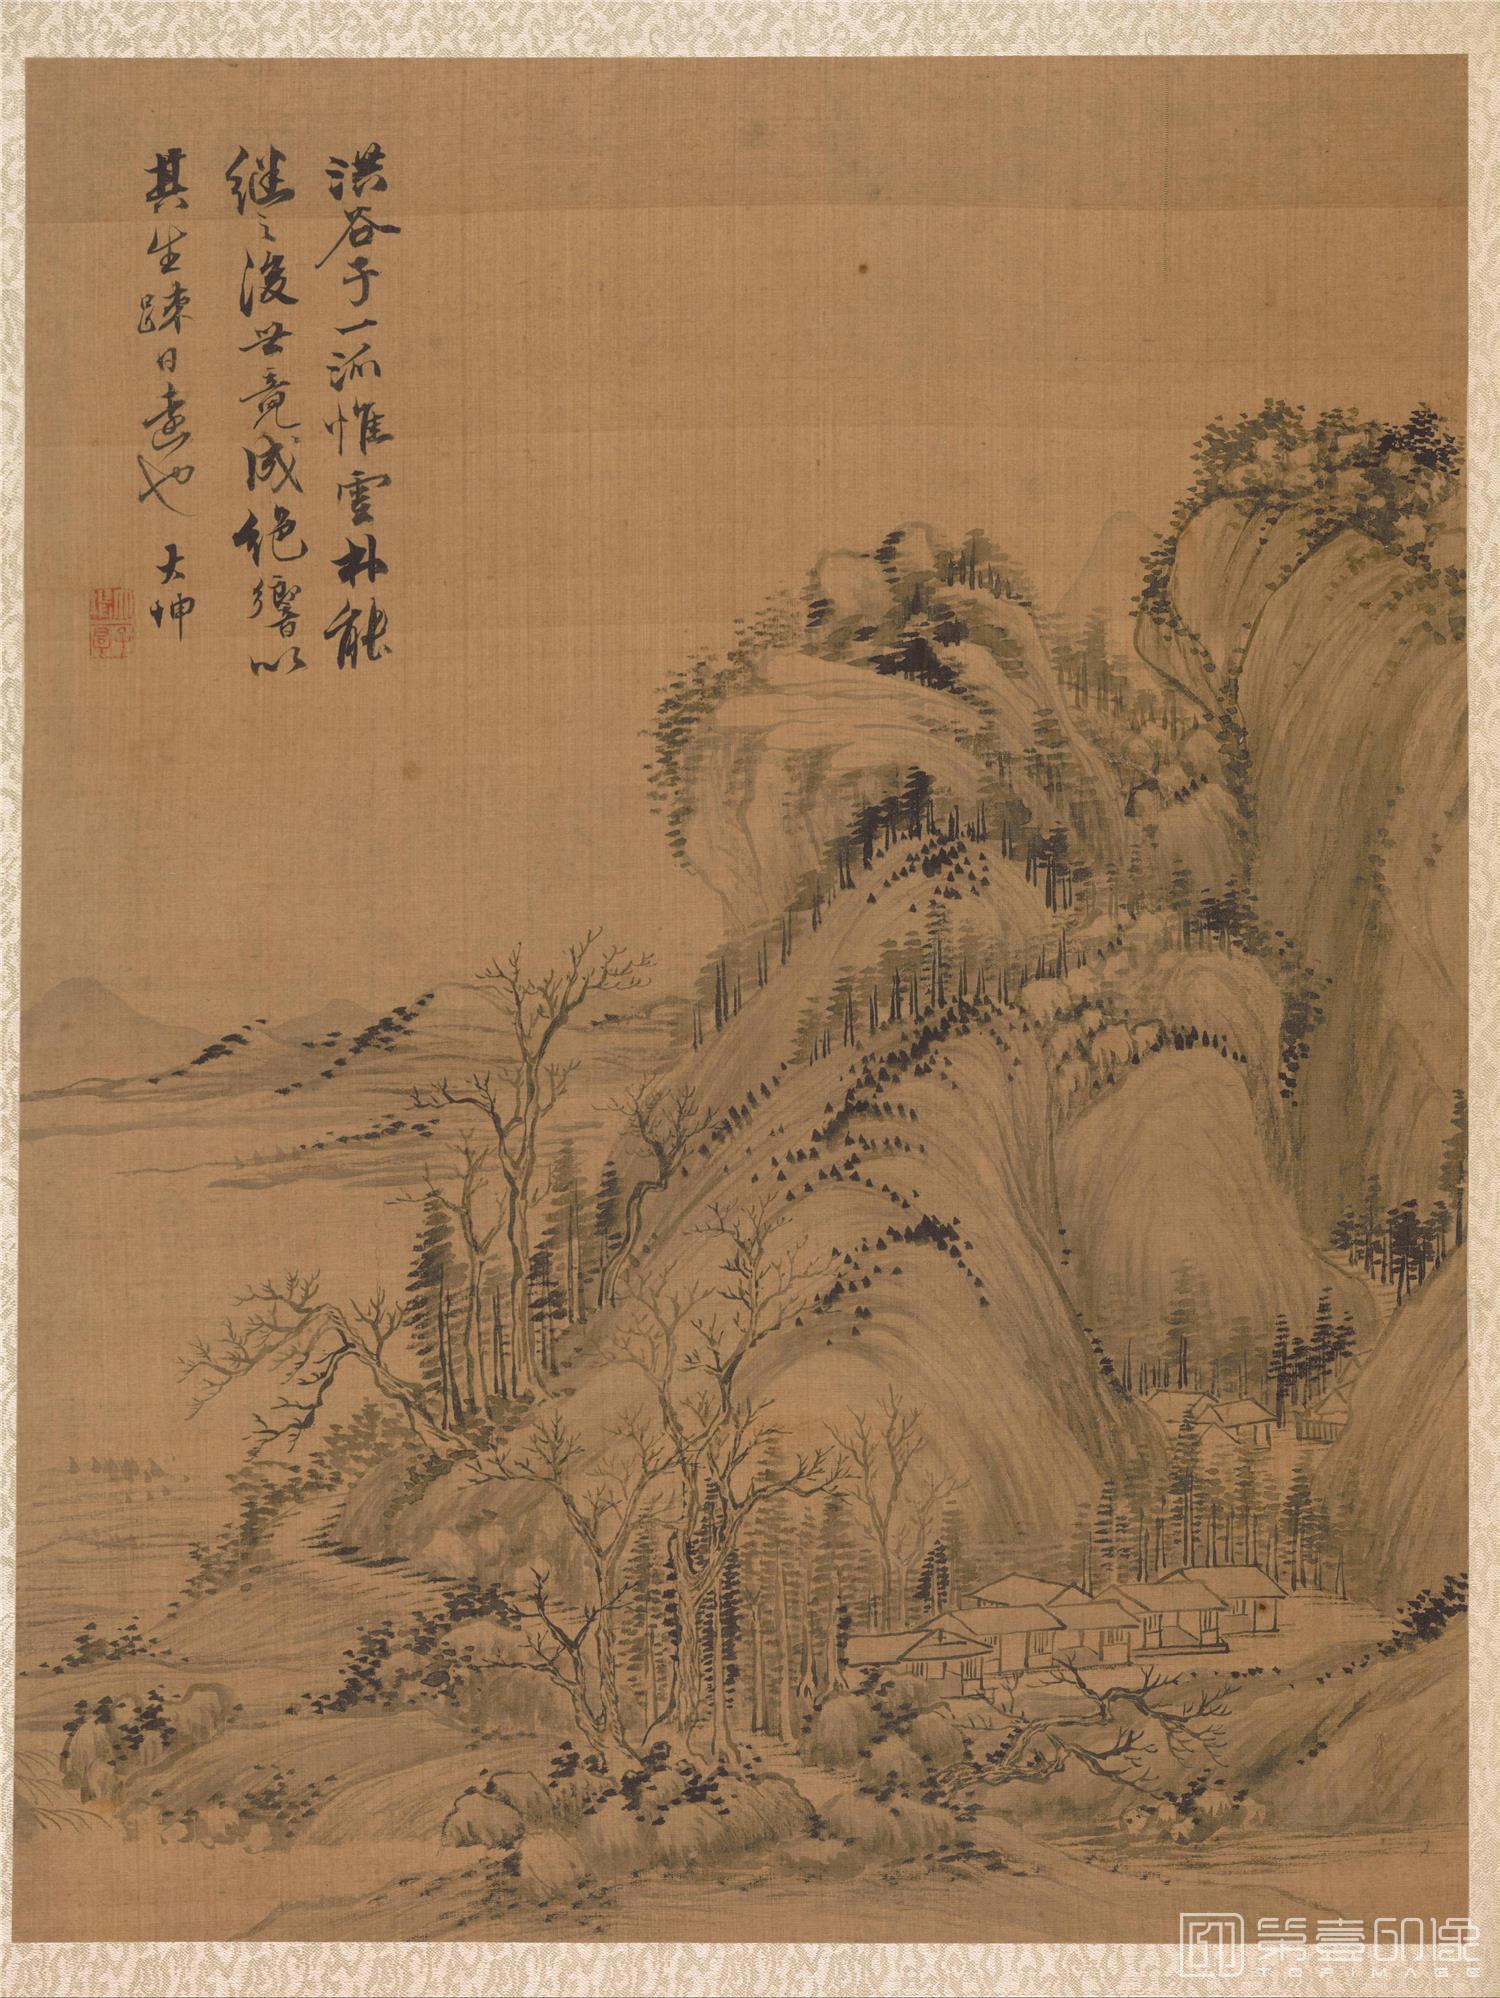 洪谷子一派惟雲林能
继之後世竟成绝響以
其生踈日遠也 大坤
第壹印象
TOPIMAGE